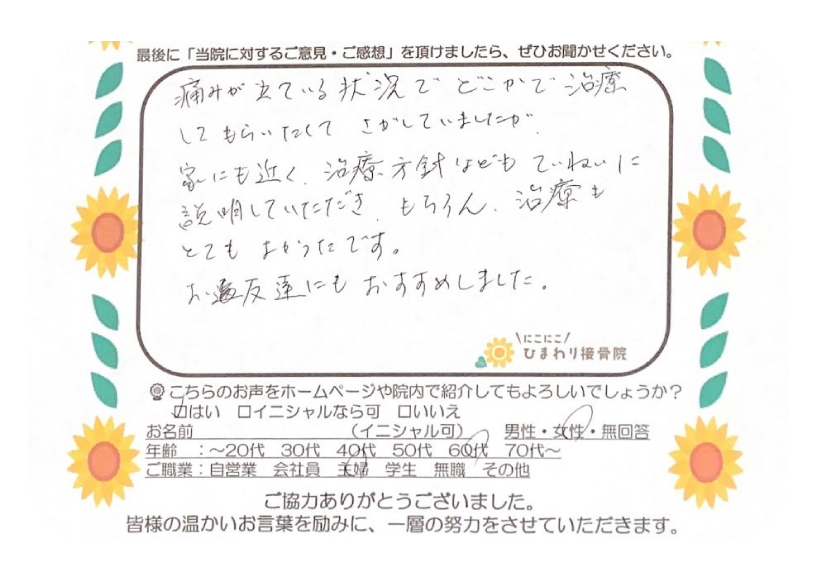 最後に「当院に対するご意見・ご感想」を頂けましたら、ぜひお聞かせください。
痛みが出ている状況で どこかで 治療
してもらいたくて さがしていましたが、
家にも近く、治療方針なども ていねいに
説明していただき、もちろん、治療も
とても よかったです。
お友達にも おすすめしました。
\にこにこ/
ひまわり接骨院
こちらのお声をホームページや院内で紹介してもよろしいでしょうか?
☑はい □イニシャルなら可 □いいえ
お名前 (イニシャル可) 男性・女性・無回答
年齢 :~20代 30代 40代 50代 60代 70代~
ご職業:自営業 会社員 主婦 学生 無職 その他
ご協力ありがとうございました。
皆様の温かいお言葉を励みに、一層の努力をさせていただきます。